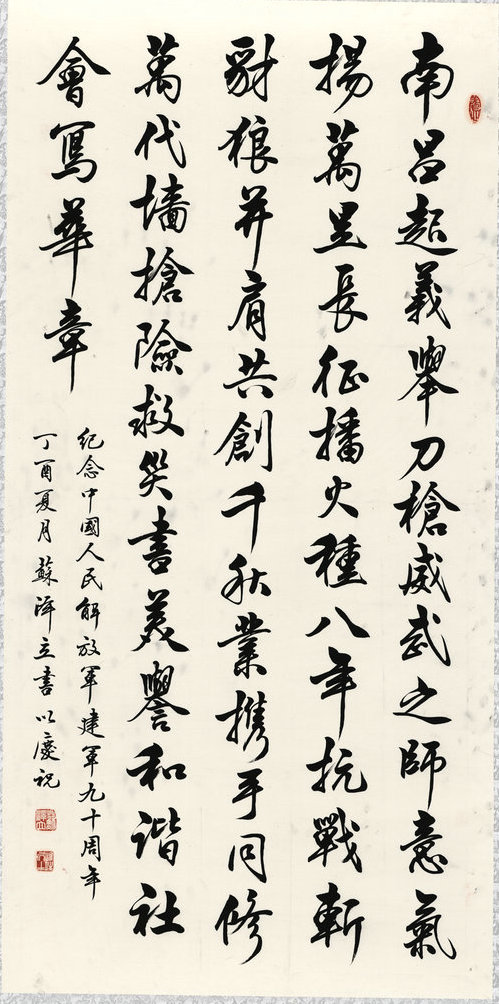 南昌起義舉刀槍威武之師意氣
揚萬里長征播火種八年抗戰斬
豺狼并肩共創千秋業携手同修
萬代墙搶險救災書美譽和諧社
會寫華章
紀念中國人民解放軍建軍九十周年
丁酉夏月蘇澤立書以慶祝